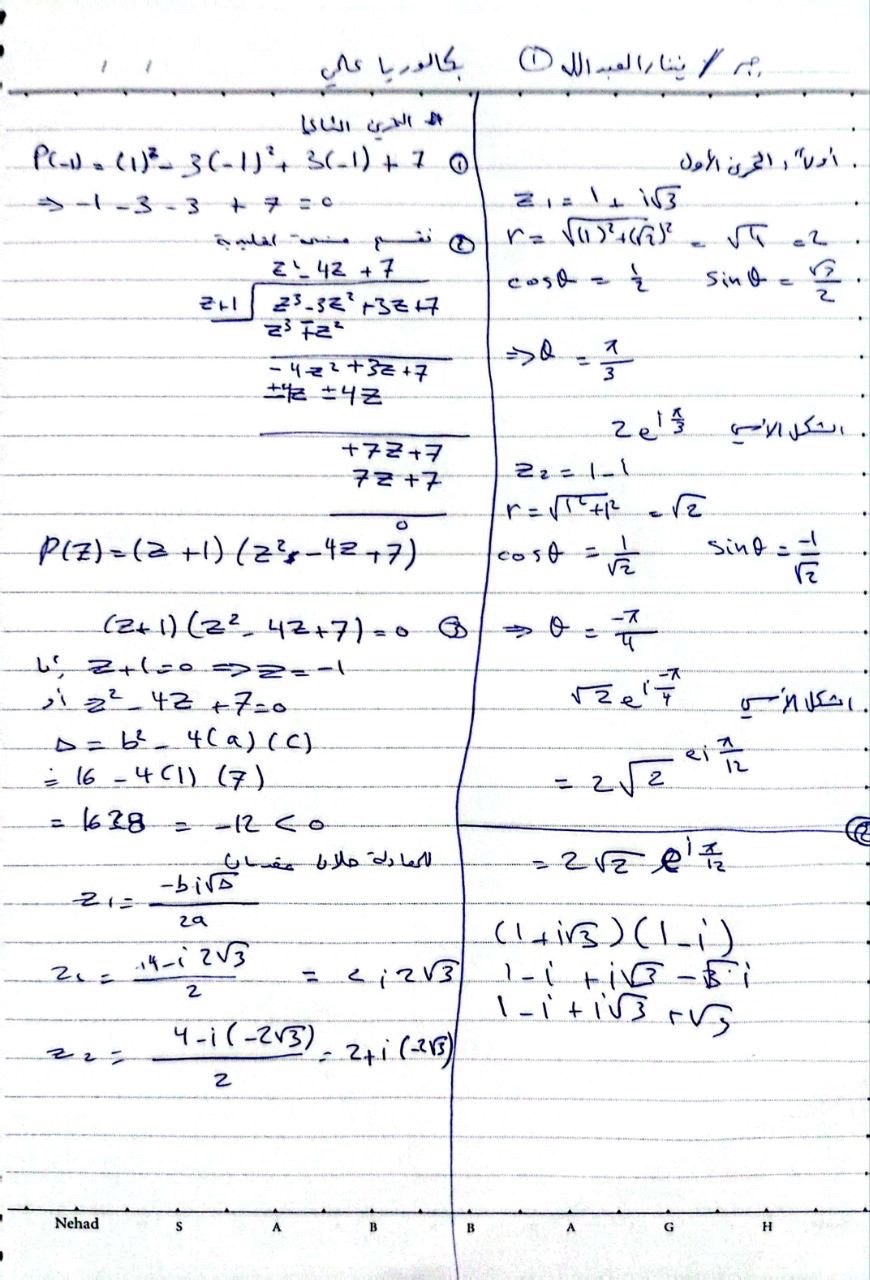 جبر / يتنار العبد الله ① بكالوريا علمي
أولاً: التمرين الأول
z₁ = 1 + i√3
r = √((1)²+(√3)²) = √4 = 2
cosθ = 1/2 sinθ = √3/2
⇒ θ = π/3
الشكل الأسي 2e^(iπ/3)
z₂ = 1 - i
r = √(1²+1²) = √2
cosθ = 1/√2 sinθ = -1/√2
⇒ θ = -π/4
الشكل الأسي √2 e^(i -π/4)
= 2√2 e^(iπ/12)
②
= 2√2 e^(iπ/12)
(1+i√3)(1-i)
1-i + i√3 - √3 i
1-i + i√3 + √3
التمرين الثاني
① P(-1) = (1)³ - 3(-1)² + 3(-1) + 7
⇒ -1 - 3 - 3 + 7 = 0
② نقسم قسمة اقليدية
z² - 4z + 7
z+1 z³ - 3z² + 3z + 7
z³ ∓ z²
-4z² + 3z + 7
±4z ± 4z
+7z + 7
7z + 7
0
P(z) = (z + 1) (z² - 4z + 7)
③ (z+1) (z² - 4z + 7) = 0
إما z + 1 = 0 ⇒ z = -1
أو z² - 4z + 7 = 0
Δ = b² - 4(a)(c)
= 16 - 4(1) (7)
= 16 28 = -12 < 0
للمعادلة حلان عقديان
z₁ = (-b i√Δ)/2a
z₁ = (4 - i 2√3)/2 = 2 i 2√3
z₂ = (4 - i(-2√3))/2 = 2 + i(-2√3)
Nehad S A B B A G H